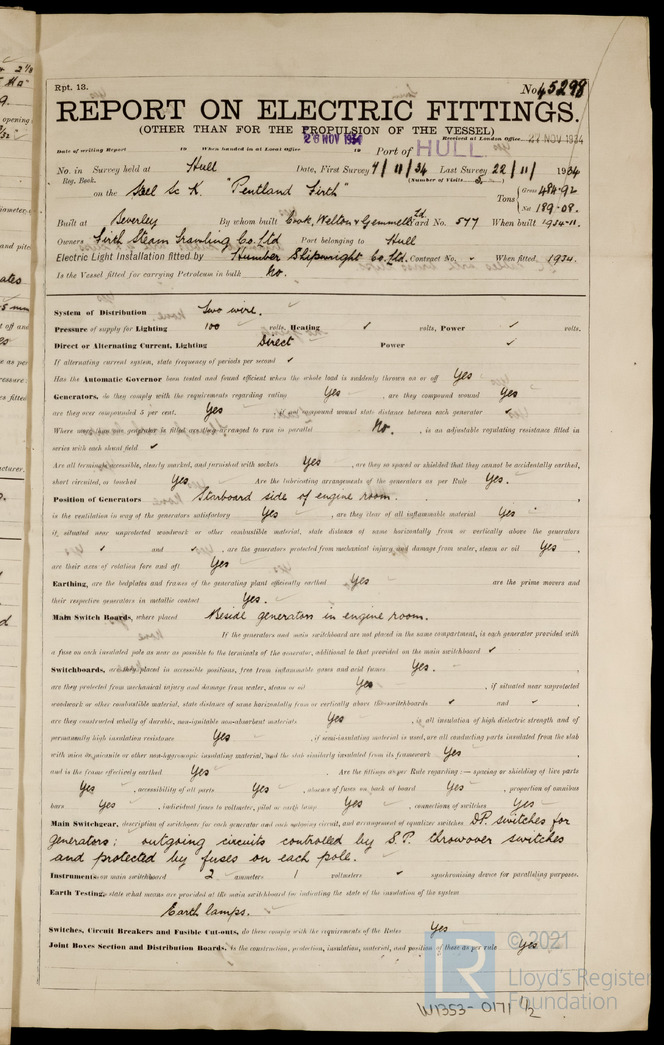 Rpt. 13.
No. 45298
REPORT ON ELECTRIC FITTINGS.
(OTHER THAN FOR THE PROPULSION OF THE VESSEL)
26 NOV 1934
Received at London Office 27 NOV 1934
Date of writing Report 19 When handed in at Local Office 19 Port of HULL
No. in Survey held at Hull Date, First Survey 7/11/34 Last Survey 22/11/1934
Reg. Book. (Number of Visits 5)
on the Steel Sc K. "Pentland Firth" Tons { Gross 484.92
Net 189.08.
Built at Beverley By whom built Cook, Welton & Gemmell Ltd Yard No. 577 When built 1934-11.
Owners Firth Steam Trawling Co. Ltd Port belonging to Hull
Electric Light Installation fitted by Humber Shipwright Co. Ltd. Contract No. - When fitted 1934.
Is the Vessel fitted for carrying Petroleum in bulk No.
System of Distribution Two wire.
Pressure of supply for Lighting 100 volts, Heating ✓ volts, Power ✓ volts.
Direct or Alternating Current, Lighting Direct Power ✓
If alternating current system, state frequency of periods per second ✓
Has the Automatic Governor been tested and found efficient when the whole load is suddenly thrown on or off Yes
Generators, do they comply with the requirements regarding rating Yes, are they compound wound Yes
are they over compounded 5 per cent. Yes, if not compound wound state distance between each generator ✓
Where more than one generator is fitted are they arranged to run in parallel No., is an adjustable regulating resistance fitted in
series with each shunt field ✓
Are all terminals accessible, clearly marked, and furnished with sockets Yes, are they so spaced or shielded that they cannot be accidentally earthed,
short circuited, or touched Yes. Are the lubricating arrangements of the generators as per Rule Yes.
Position of Generators Starboard side of engine room.
is the ventilation in way of the generators satisfactory Yes, are they clear of all inflammable material Yes
if situated near unprotected woodwork or other combustible material, state distance of same horizontally from or vertically above the generators
✓ and ✓, are the generators protected from mechanical injury and damage from water, steam or oil Yes,
are their axes of rotation fore and aft Yes
Earthing, are the bedplates and frames of the generating plant efficiently earthed Yes are the prime movers and
their respective generators in metallic contact Yes.
Main Switch Boards, where placed Beside generators in engine room.
If the generators and main switchboard are not placed in the same compartment, is each generator provided with
a fuse on each insulated pole as near as possible to the terminals of the generator, additional to that provided on the main switchboard ✓
Switchboards, are they placed in accessible positions, free from inflammable gases and acid fumes Yes.
are they protected from mechanical injury and damage from water, steam or oil Yes, if situated near unprotected
woodwork or other combustible material, state distance of same horizontally from or vertically above the switchboards ✓ and ✓,
are they constructed wholly of durable, non-ignitable non-absorbent materials Yes, is all insulation of high dielectric strength and of
permanently high insulation resistance Yes, if semi-insulating material is used, are all conducting parts insulated from the slab
with mica or micanite or other non-hygroscopic insulating material, and the slab similarly insulated from its framework Yes,
and is the frame effectively earthed Yes. Are the fittings as per Rule regarding:— spacing or shielding of live parts
Yes, accessibility of all parts Yes, absence of fuses on back of board Yes, proportion of omnibus
bars Yes, individual fuses to voltmeter, pilot or earth lamp Yes, connections of switches Yes
Main Switchgear, description of switchgear for each generator and each outgoing circuit, and arrangement of equalizer switches D.P. switches for
generators; outgoing circuits controlled by S.P. throwover switches
and protected by fuses on each pole.
Instruments on main switchboard 2 ammeters 1 voltmeters ✓ synchronising device for paralleling purposes.
Earth Testing, state what means are provided at the main switchboard for indicating the state of the insulation of the system
Earth lamps.
Switches, Circuit Breakers and Fusible Cut-outs, do these comply with the requirements of the Rules Yes
Joint Boxes Section and Distribution Boards, is the construction, protection, insulation, material, and position of these as per rule Yes
© 2021
LR
Lloyd's Register
Foundation
W1353-0171 1/2